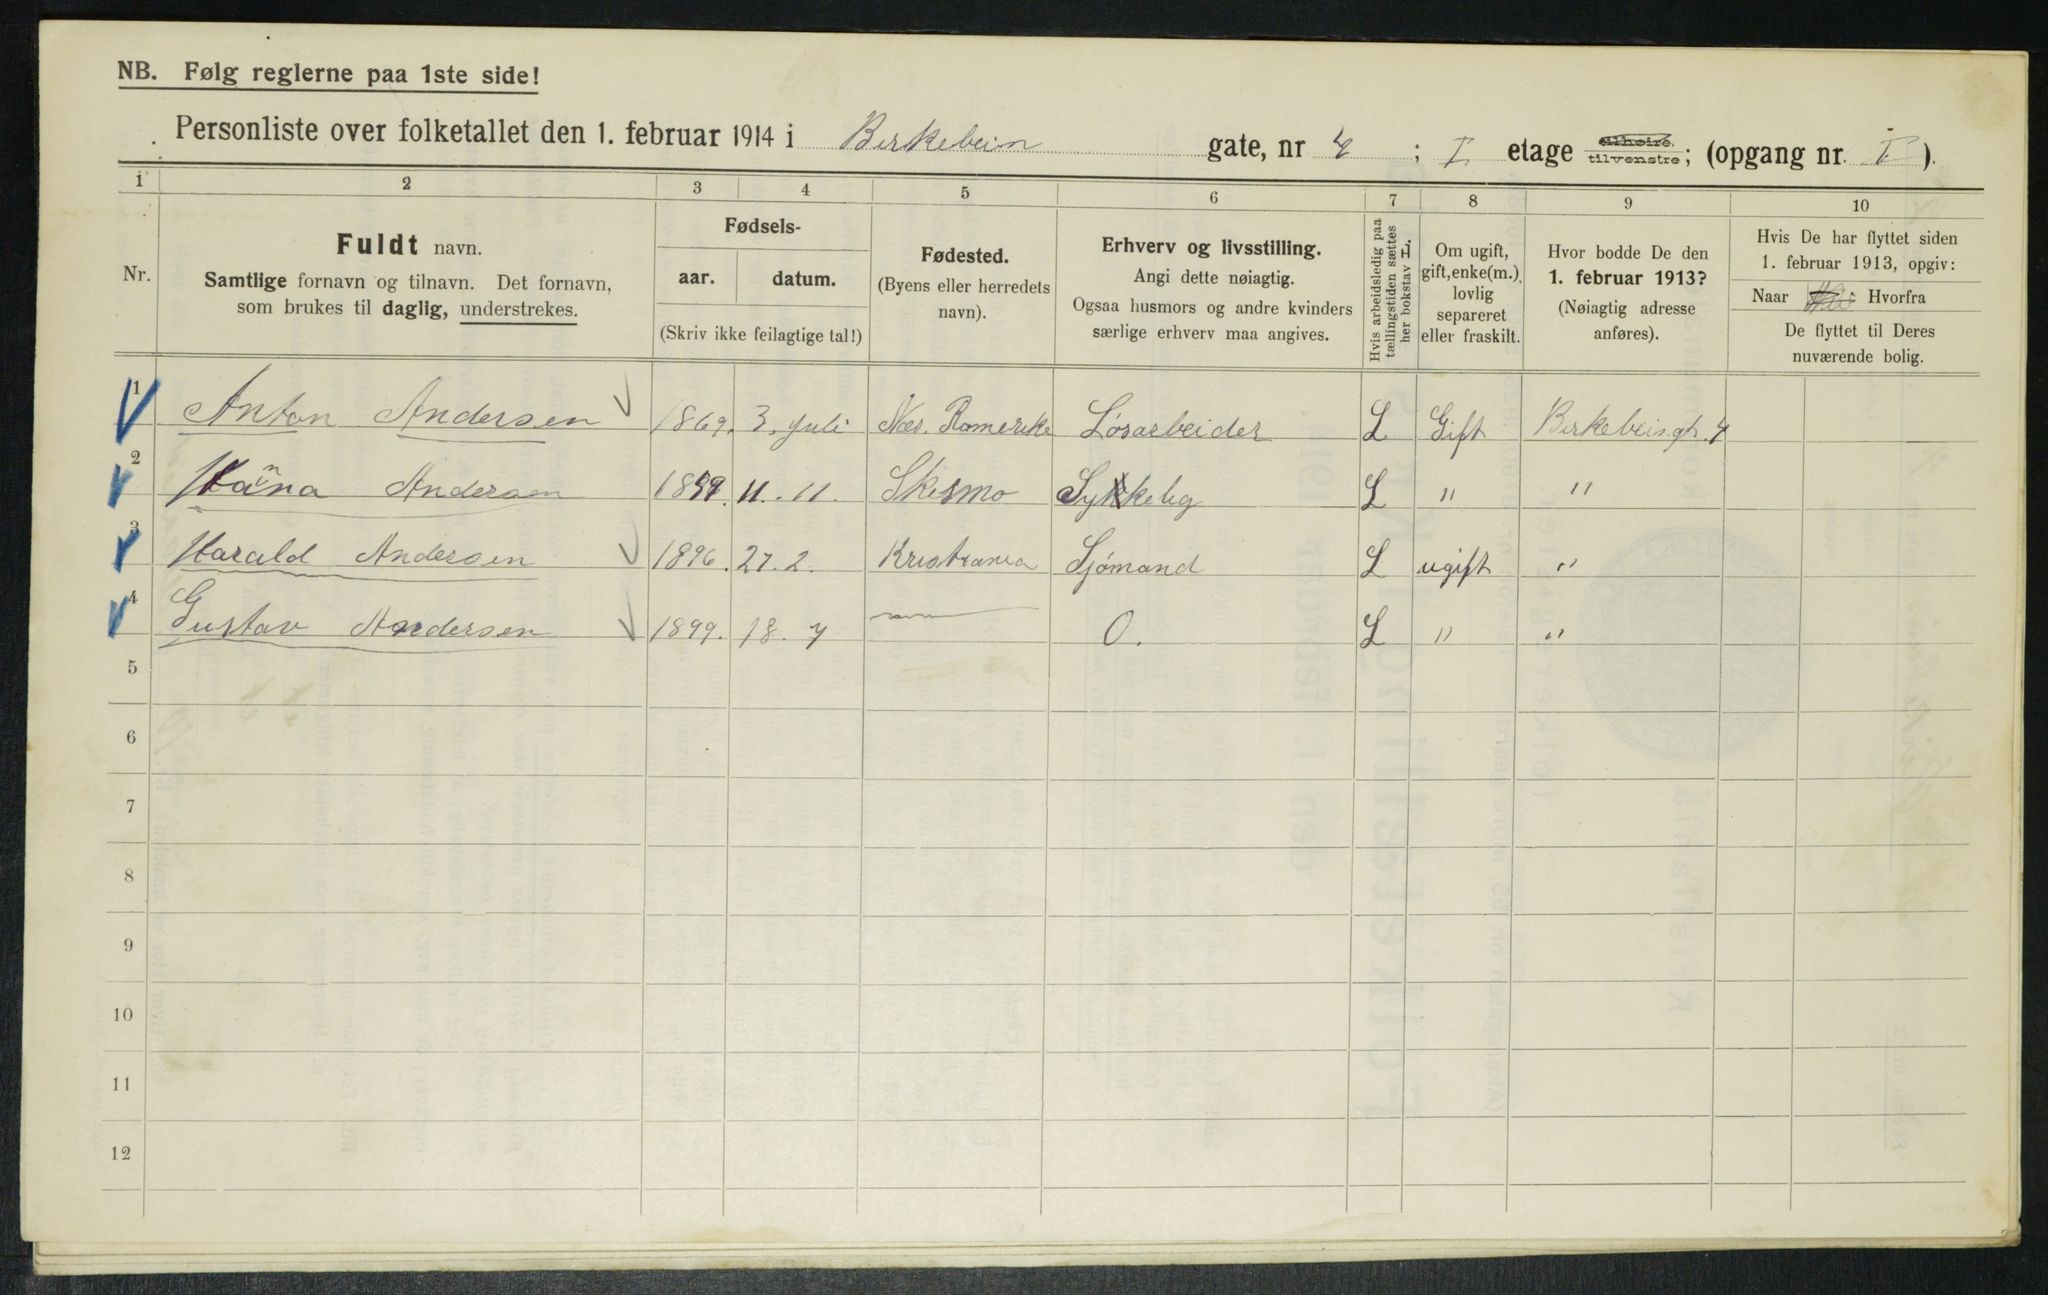 NB. Følg reglerne paa 1ste side!
Personliste over folketallet den 1. februar 1914 i Birkebein gate, nr 4 ; I etage tilhøire, tilvenstre; (opgang nr. I ).
1 2 3 4 5 6 7 8 9 10
Nr.
Fuldt navn.
Samtlige fornavn og tilnavn. Det fornavn,
som brukes til daglig, understrekes.
Fødsels-
aar. datum.
(Skriv ikke feilagtige tal!)
Fødested.
(Byens eller herredets
navn).
Erhverv og livsstilling.
Angi dette nøiagtig.
Ogsaa husmors og andre kvinders
særlige erhverv maa angives.
Hvis arbeidsledig paa
tællingstiden sættes
her bokstav L.
Om ugift,
gift, enke(m.),
lovlig
separeret
eller fraskilt.
Hvor bodde De den
1. februar 1913?
(Nøiagtig adresse
anføres).
Hvis De har flyttet siden
1. februar 1913, opgiv:
Naar Hvorfra
De flyttet til Deres
nuværende bolig.
1 Anton Andersen 1869. 3. Juli Næs. Romerike Løsarbeider L Gift Birkebeisgt. 4
2 Hanna Andersen 1859. 11. 11. Skesmo Sykkelig L " "
3 Harald Andersen 1896. 27. 2. Kristiania Sjømand L ugift "
4 Gustav Andersen 1899. 18. 7 0. L " "
5
6
7
8
9
10
11
12